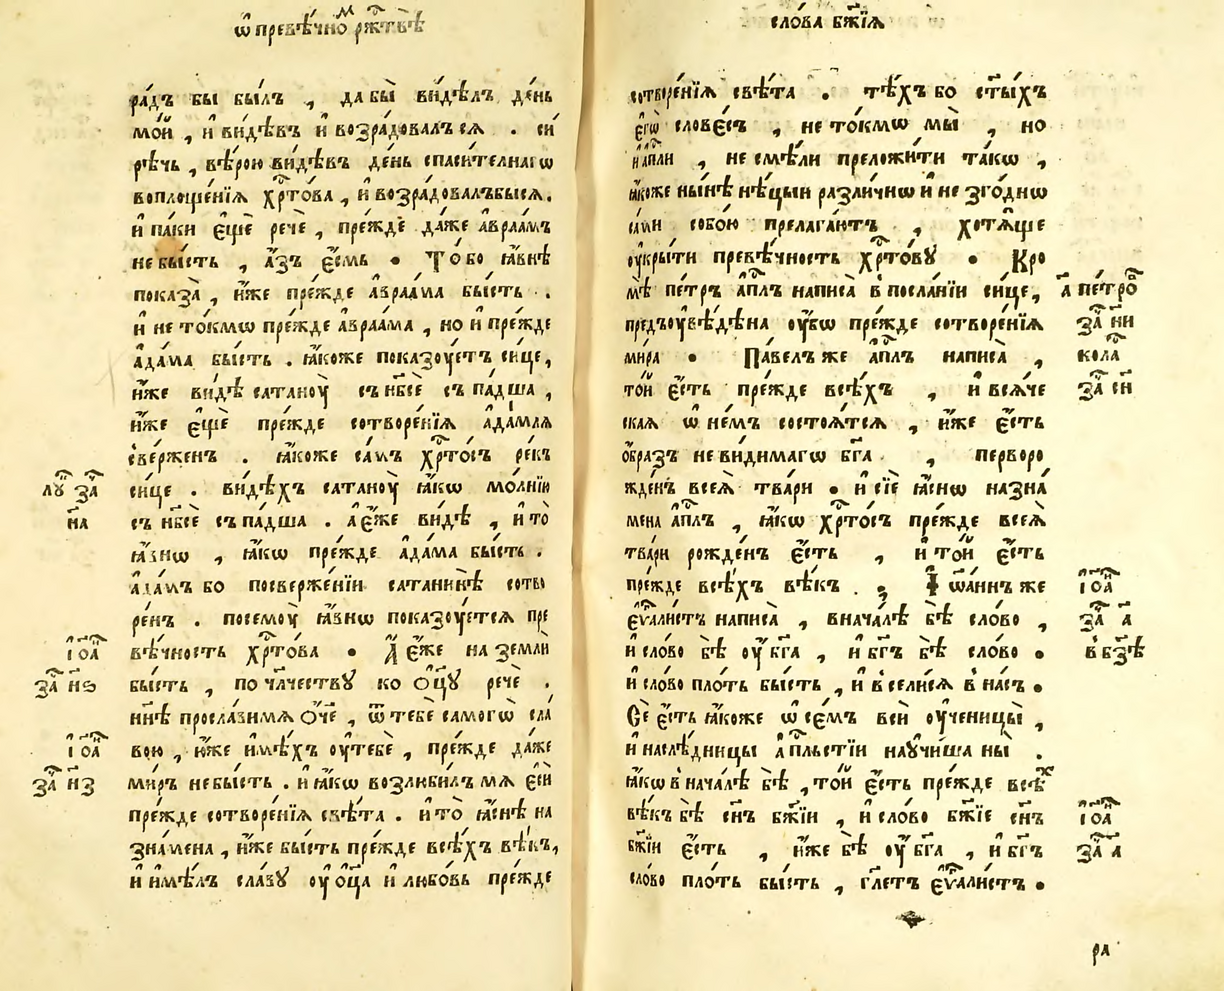 ѡ҆ превѣ́чноⷨ рж҃твѣ̀
ра́дъ бы бы́лъ , да бы̀ ви́дѣлъ де́нь
мо́й , и҆ ви́дѣвъ и҆ возра́довалъ сѧ . си́
рѣчь , вѣ́рою ви́дѣвъ де́нь спаси́телнагѡ
воплоще́нїѧ хрⷭ҇то́ва , и҆ возра́довалъбысѧ.
и҆ па́ки є҆щѐ речѐ , пре́жде да́же а҆враа́мъ
не бы́сть , а҆́зъ є҆́смь • То́ бо ꙗ҆́внѣ
показа̀ , и҆́же пре́жде а҆враа́ма бы́сть .
и҆ не то́кмѡ пре́жде а҆враа́ма , но и҆ пре́жде
а҆да́ма бы́сть . ꙗ҆́коже показꙋ́етъ си́це,
и҆́же ви́дѣ сатанꙋ̀ съ нб҃сѐ съ па́дша ,
и҆́же є҆щѐ пре́жде сотворе́нїѧ а҆да́млѧ
све́рженъ . ꙗ҆́коже са́мъ хрⷭ҇то́съ ре́къ
си́це . ви́дѣхъ сатанꙋ̀ ꙗ҆́кѡ мо́лнїю
съ нб҃сѐ съ па́дша . а҆ є҆́же ви́дѣ , и҆ то̀
ꙗ҆́внѡ , ꙗ҆́кѡ пре́жде а҆да́ма бы́сть .
а҆да́мъ бо по сверже́нїи сатанинѣ̀ сотво
ре́нъ . посемꙋ̀ ꙗ҆́внѡ показꙋ́етсѧ пре
вѣ́чность хрⷭ҇то́ва • А҆ є҆́же на землѝ
бы́сть , по чл҃честву ко ѻ҆ц҃у речѐ .
нн҃ѣ просла́вимѧ ѻ҆́ч҃е , ѿ тебѐ самогѡ̀ сла́
вою , ю҆́же и҆мѣ́хъ ꙋ҆тебѐ , пре́жде да́же
ми́ръ не бы́сть . и҆ ꙗ҆́кѡ возлюби́лъ мѧ є҆сѝ
пре́жде сотворе́нїѧ свѣ́та . и҆ то̀ ꙗ҆́снѣ на
зна́мена , и҆́же бы́сть пре́жде всѣ́хъ вѣ́къ,
и҆ и҆мѣ́лъ сла́ву ꙋ҆ ѻ҆ц҃а̀ и҆ любо́вь пре́жде
лꙋⷦ҇ заⷱ҇
н҃а
і҆ѡаⷩ҇
заⷱ҇ н҃ѕ
і҆ѡаⷩ҇
заⷱ҇ н҃з
сло́ва бж҃їѧ
сотворе́нїѧ свѣ́та . тѣ́хъ бо ст҃ы́хъ
є҆гѡ̀ слове́съ , не то́кмѡ мы̀ , но
и҆ а҆пⷭ҇ли , не смѣ́ли преложи́ти та́кѡ ,
ꙗ҆́коже ны́нѣ нѣ́цыи разли́чнѡ и҆ не зго́днѡ
са́ми собо́ю прелага́ютъ , хотѧ́ще
ᲂу҆кры́ти превѣ́чность хрⷭ҇то́ву • Кро
мѣ̀ пе́тръ а҆пⷭ҇лъ написа̀ в посла́нїи си́це,
предъꙋвѣ́дѣна ᲂу҆́бѡ пре́жде сотворе́нїѧ
ми́ра • Па́велъ же а҆пⷭ҇лъ написа̀ ,
то́й є҆́сть пре́жде всѣ́хъ , и҆ всѧ́че
скаѧ ѡ҆ не́мъ состоѧ́тсѧ , и҆́же є҆́сть
ѻ҆́бразъ неви́димагѡ бг҃а . , перворо
жде́нъ всеѧ̀ тва́ри • и҆ сїѐ ꙗ҆́снѡ назна́
мена а҆пⷭ҇лъ , ꙗ҆́кѡ хрⷭ҇то́съ пре́жде всеѧ̀
тва́ри рожде́нъ є҆́сть , и҆ то́й є҆́сть
пре́жде всѣ́хъ вѣ́къ . , І҆ѡа́ннъ же
є҆ѵⷢ҇али́стъ написа̀ , внача́лѣ бѣ̀ сло́во ,
и҆ сло́во бѣ̀ ᲂу҆ бг҃а , и҆ бг҃ъ бѣ̀ сло́во •
и҆ сло́во пло́ть бы́сть , и҆ всели́сѧ в на́съ •
Сѐ є҆́сть ꙗ҆́коже ѡ҆ се́мъ всѝ ᲂу҆ченицы̀ ,
и҆ наслѣ́дницы а҆пⷭ҇льстїи научи́ша ны̀ .
ꙗ҆́кѡ в нача́лѣ бѣ̀ , то́й є҆́сть пре́жде всѣⷯ
вѣ́къ бѣ̀ сн҃ъ бж҃їи , и҆ сло́во бж҃їе сн҃ъ
бж҃їи є҆́сть , и҆́же бѣ̀ ᲂу҆ бг҃а , и҆ бг҃ъ
сло́во пло́ть бы́сть , гл҃етъ є҆ѵⷢ҇али́стъ •
а҃ петроⷡ҇
заⷱ҇ н҃и
кола
заⷱ҇ с҃н
і҆ѡаⷩ҇
заⷱ҇ а҃
в бз҃ѣ
і҆ѡаⷩ҇
заⷱ҇ а҃
ра